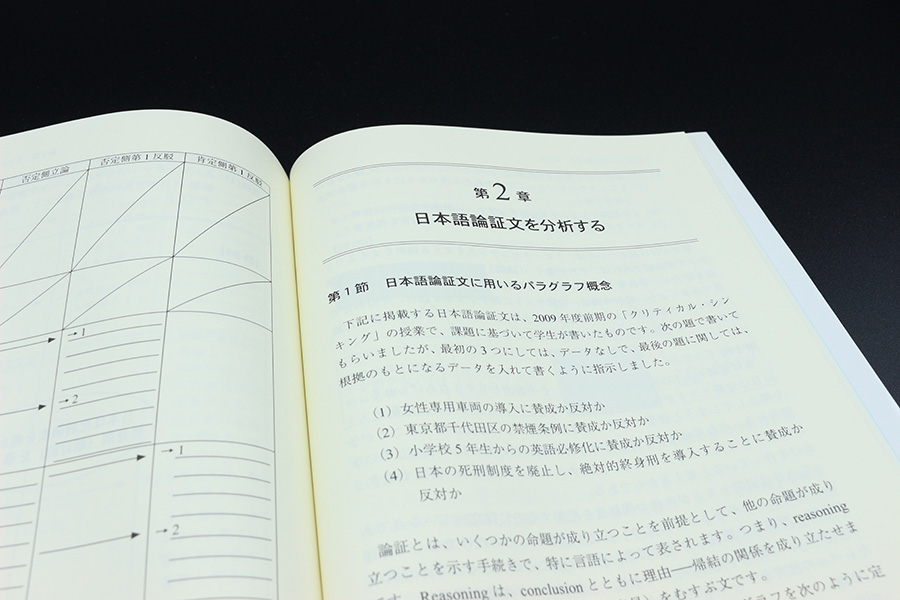 否定側立論
否定側第1反駁
肯定側第1反駁
→1
→2
→1
→2
第2章
日本語論証文を分析する
第1節 日本語論証文に用いるパラグラフ概念
下記に掲載する日本語論証文は、2009年度前期の「クリティカル・シン
キング」の授業で、課題に基づいて学生が書いたものです。次の題で書いて
もらいましたが、最初の3つにしては、データなしで、最後の題に関しては、
根拠のもとになるデータを入れて書くように指示しました。
(1) 女性専用車両の導入に賛成か反対か
(2) 東京都千代田区の禁煙条例に賛成か反対か
(3) 小学校5年生からの英語必修化に賛成か反対か
(4) 日本の死刑制度を廃止し、絶対的終身刑を導入することに賛成か
反対か
論証とは、いくつかの命題が成り立つことを前提として、他の命題が成り
立つことを示す手続きで、特に言語によって表されます。つまり、reasoning
です。Reasoningは、conclusionとともに理由―帰結の関係を成り立たせま
をむすぶ文です。
グラフを次のように定